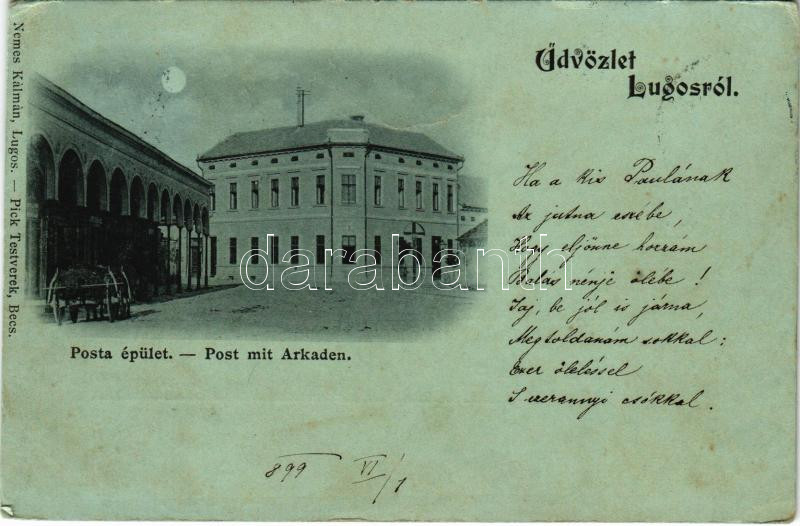 Nemes Kálmàn, Lugos. — Pick Testverek, Becs.
Üdvözlet
Lugosról.
Ha a kis Paulának
Az jutna eszébe,
Hogy eljönne hozzám
nénje ölébe!
Jaj, be jól is járna,
Megtoldanám sokkal:
Ezer öleléssel
S ezerannyi csókkal.
darabanth
Posta épület. — Post mit Arkaden.
899 VI/1